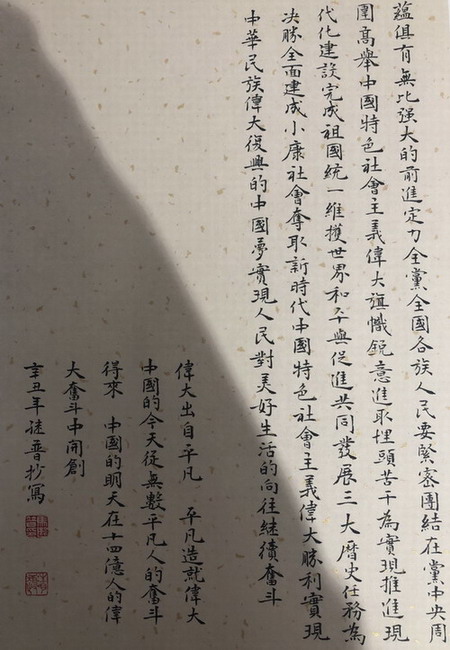 蕴俱有無比强大的前進定力全黨全國各族人民要緊密團結在黨中央周
圍高舉中國特色社會主義偉大旗幟鋭意進取埋頭苦干為實現推進現
代化建設完成祖國統一維護世界和平與促進共同發展三大曆史任務為
决勝全面建成小康社會奪取新時代中國特色社會主義偉大勝利實現
中華民族偉大復興的中國夢實現人民對美好生活的向往继續奮斗
偉大出自平凡 平凡造就偉大
中國的今天從無數平凡人的奮斗
得來 中國的明天在十四億人的偉
大奮斗中開創
辛丑年 晋抄寫